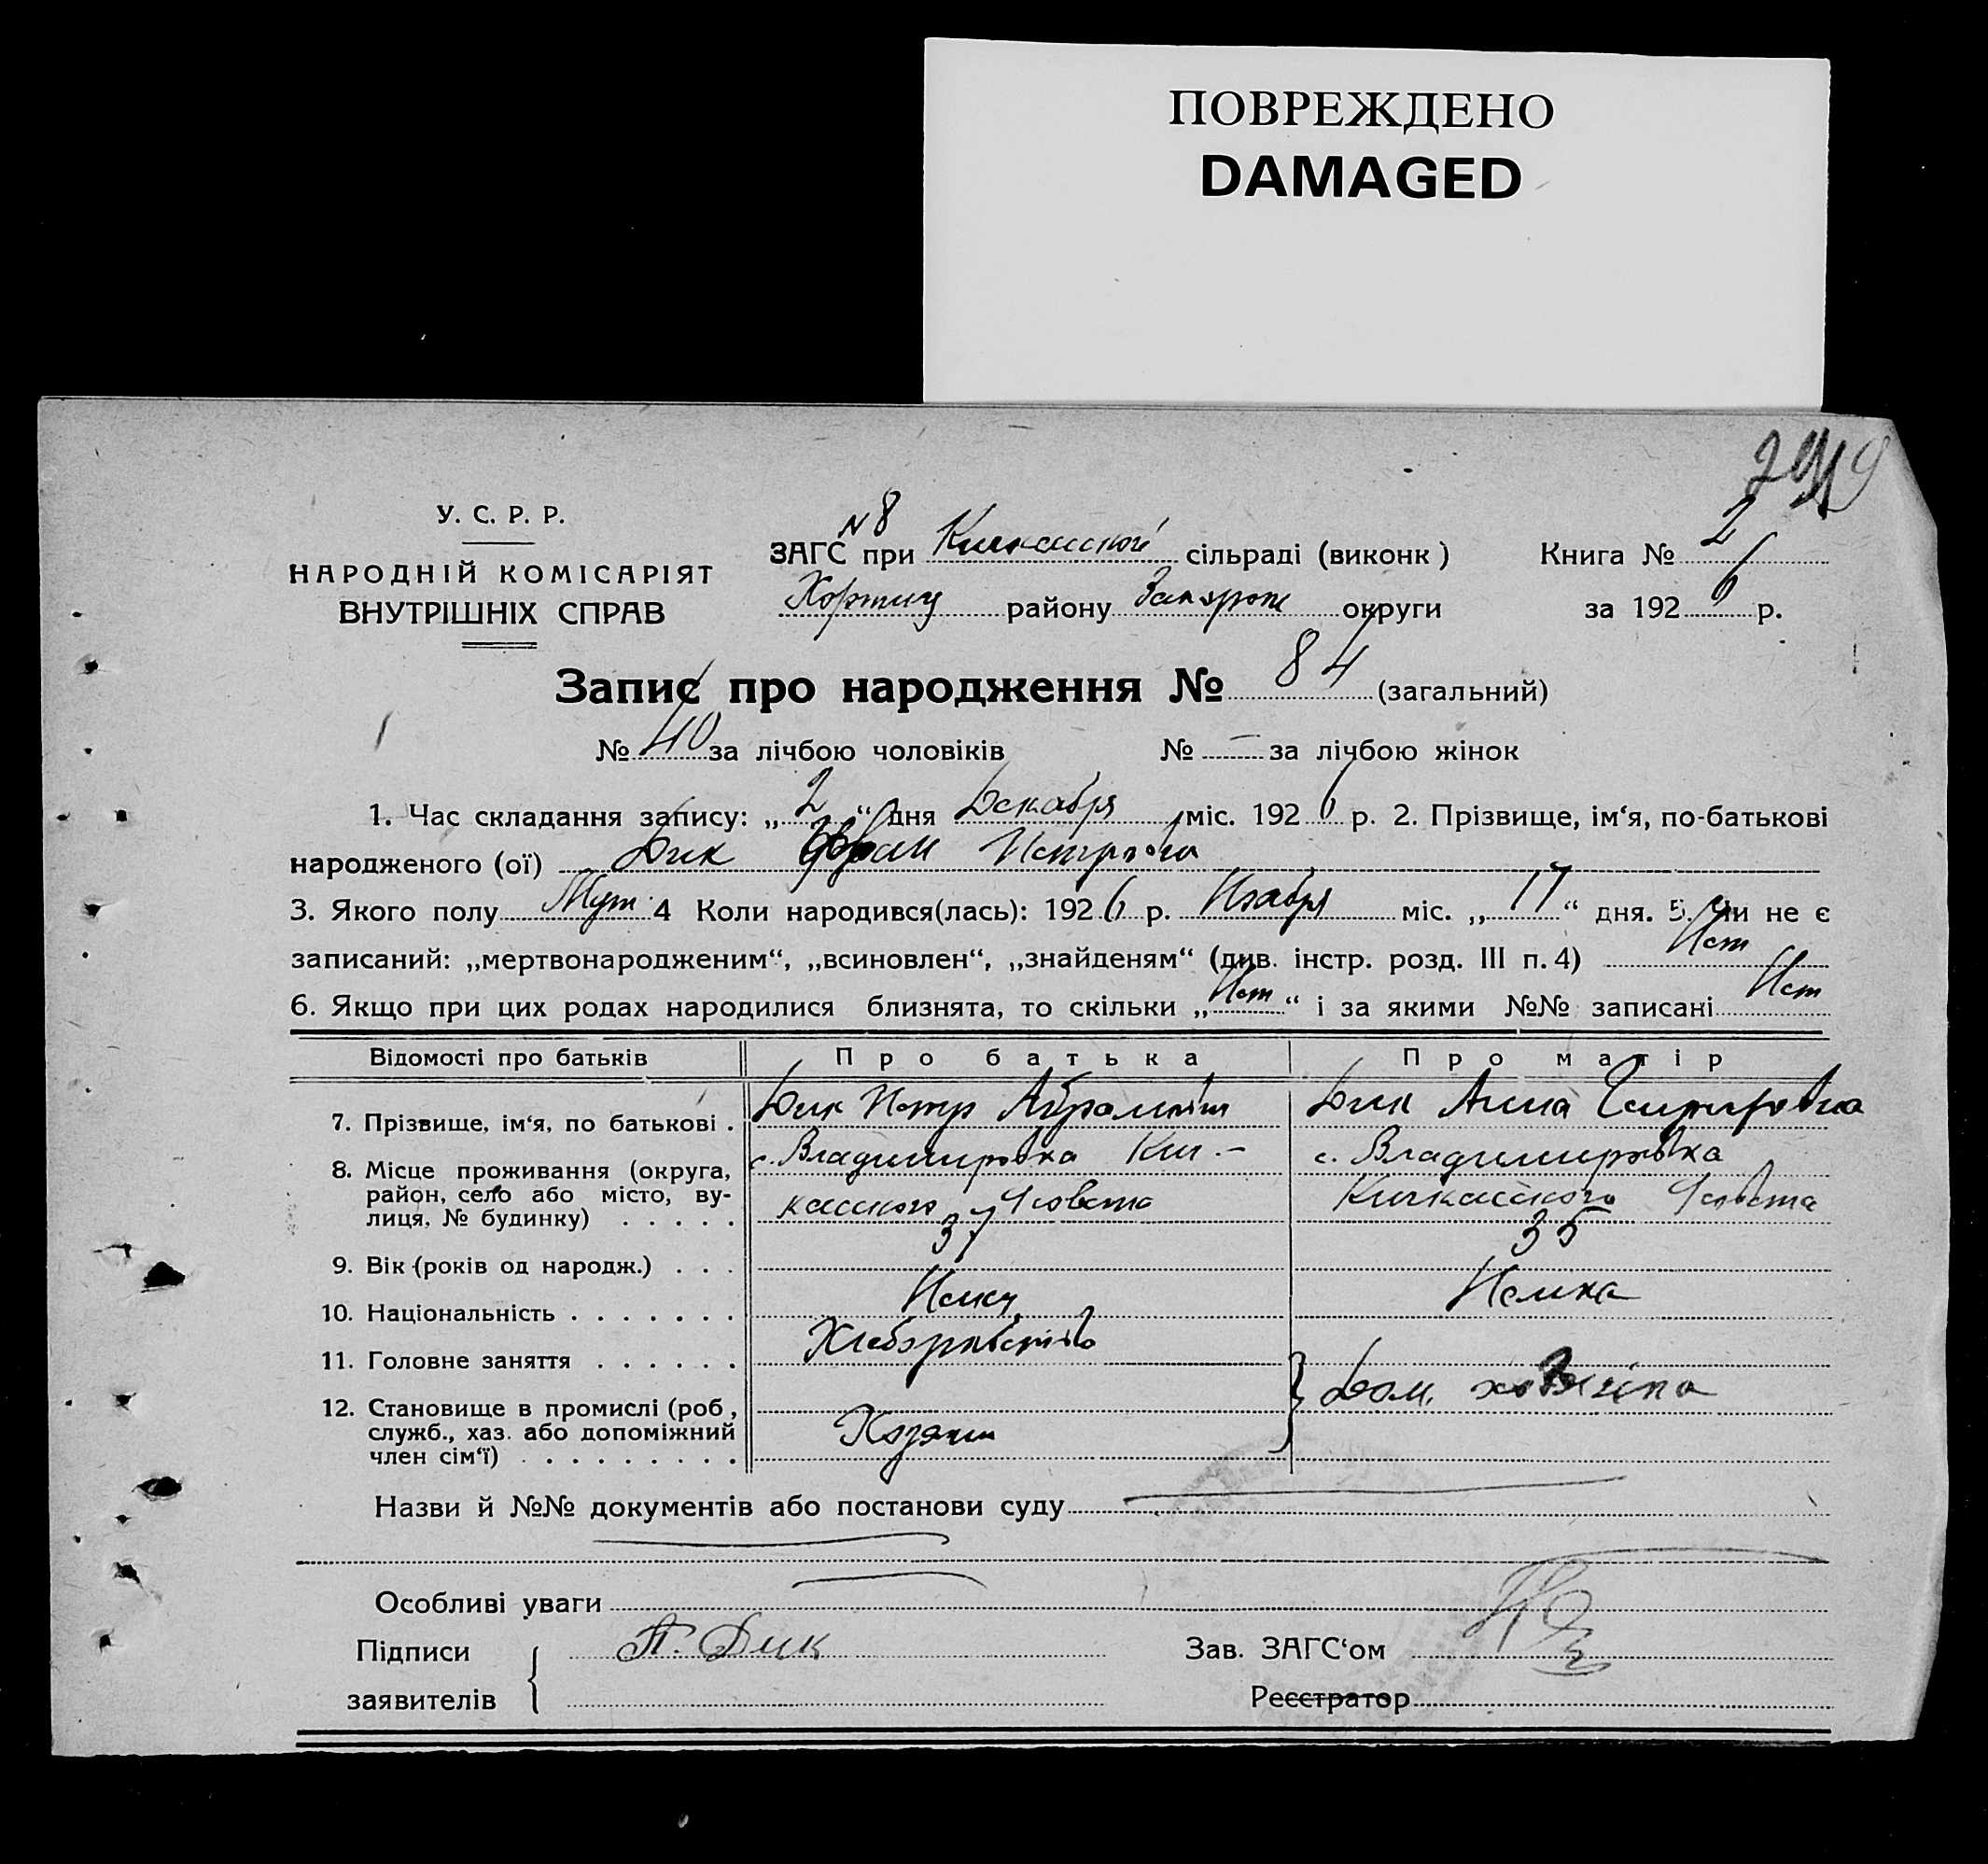 ПОВРЕЖДЕНО
DAMAGED
У. С. Р. Р.
НАРОДНІЙ КОМІСАРІЯТ
ВНУТРІШНІХ СПРАВ
N 8
ЗАГС при Кичкасской сільраді (виконк)
Хортиц району Запорож округи
Книга № 2
за 1926 р.
Запис про народження № 84 (загальний)
№ 40 за лічбою чоловіків № — за лічбою жінок
1. Час складання запису: „2“ дня Декабря міс. 1926 р. 2. Прізвище, ім‘я, по-батькові
народженого (ої) Дик Петрович
3. Якого полу Муж. 4 Коли народився(лась): 1926 р. Ноября міс. „17“ дня. 5. Чи не є
записаний: „мертвонародженим“, „всиновлен“, „знайденям“ (див. інстр. розд. III п. 4) Нет
6. Якщо при цих родах народилися близнята, то скільки „Нет“ і за якими №№ записані Нет
Відомості про батьків Про батька Про матір
7. Прізвище, ім‘я, по батькові . Дик Петр Абрамович Дик Анна
8. Місце проживання (округа, район, село або місто, вулиця, № будинку) . . . . .
с. Владимировка Кич-
касского с/совета
с. Владимировка
Кичкасского с/совета
9. Вік (років од народж.) . . . 37 35
10. Національність . . . . . . . Немец Немка
11. Головне заняття . . . . . . Хлеборобство
Дом. хозяїка
12. Становище в промислі (роб, служб., хаз. або допоміжний член сім‘ї) . . . . . . . . . Хозяин
Назви й №№ документів або постанови суду
Особливі уваги
Підписи
заявителів
П. Дик
Зав. ЗАГС‘ом
Реєстратор